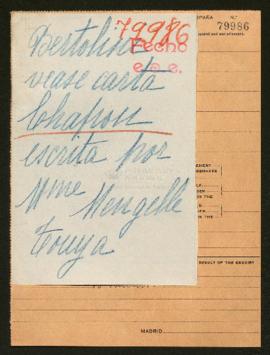 ESPAÑA N.º
79986
79986
Bertolini
Fecho
vease carta
Chapon
escrita por
Mme Mengelle
Touya
RESULT OF THE ENQUIRY
MADRID